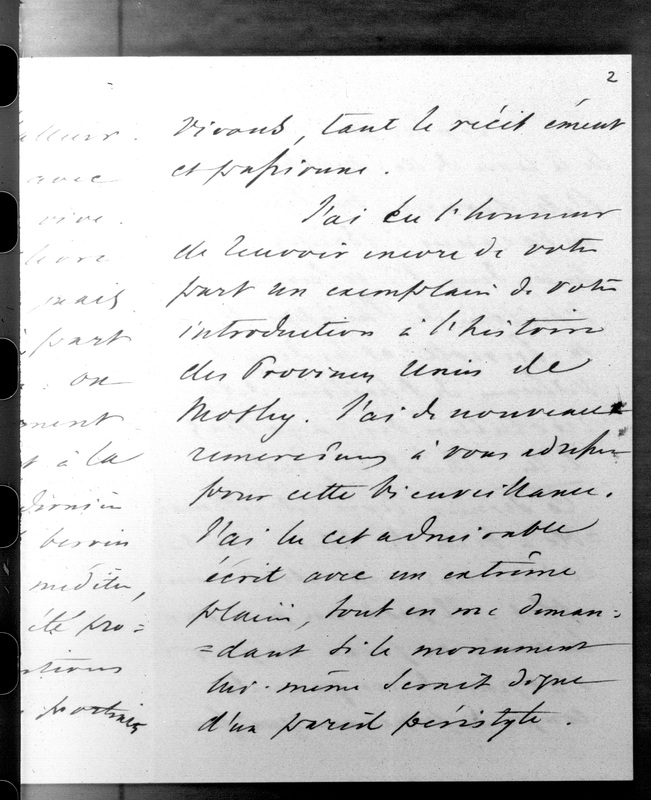 2
vivant, tant le récit émeut
et passionne.
J'ai eu l'honneur
de recevoir encore de votre
part un exemplaire de votre
introduction à l'histoire
des Provinces Unies de
Motley. J'ai de nouveaux
remerciements à vous adresser
pour cette bienveillance.
J'ai lu cet admirable
écrit avec un extrême
plaisir, tout en me deman=
=dant si le monument
lui-même serait digne
d'un pareil péristyle.
avec
vive
mais
part
on
à la
dernier
besoin
méditer,
été pro=